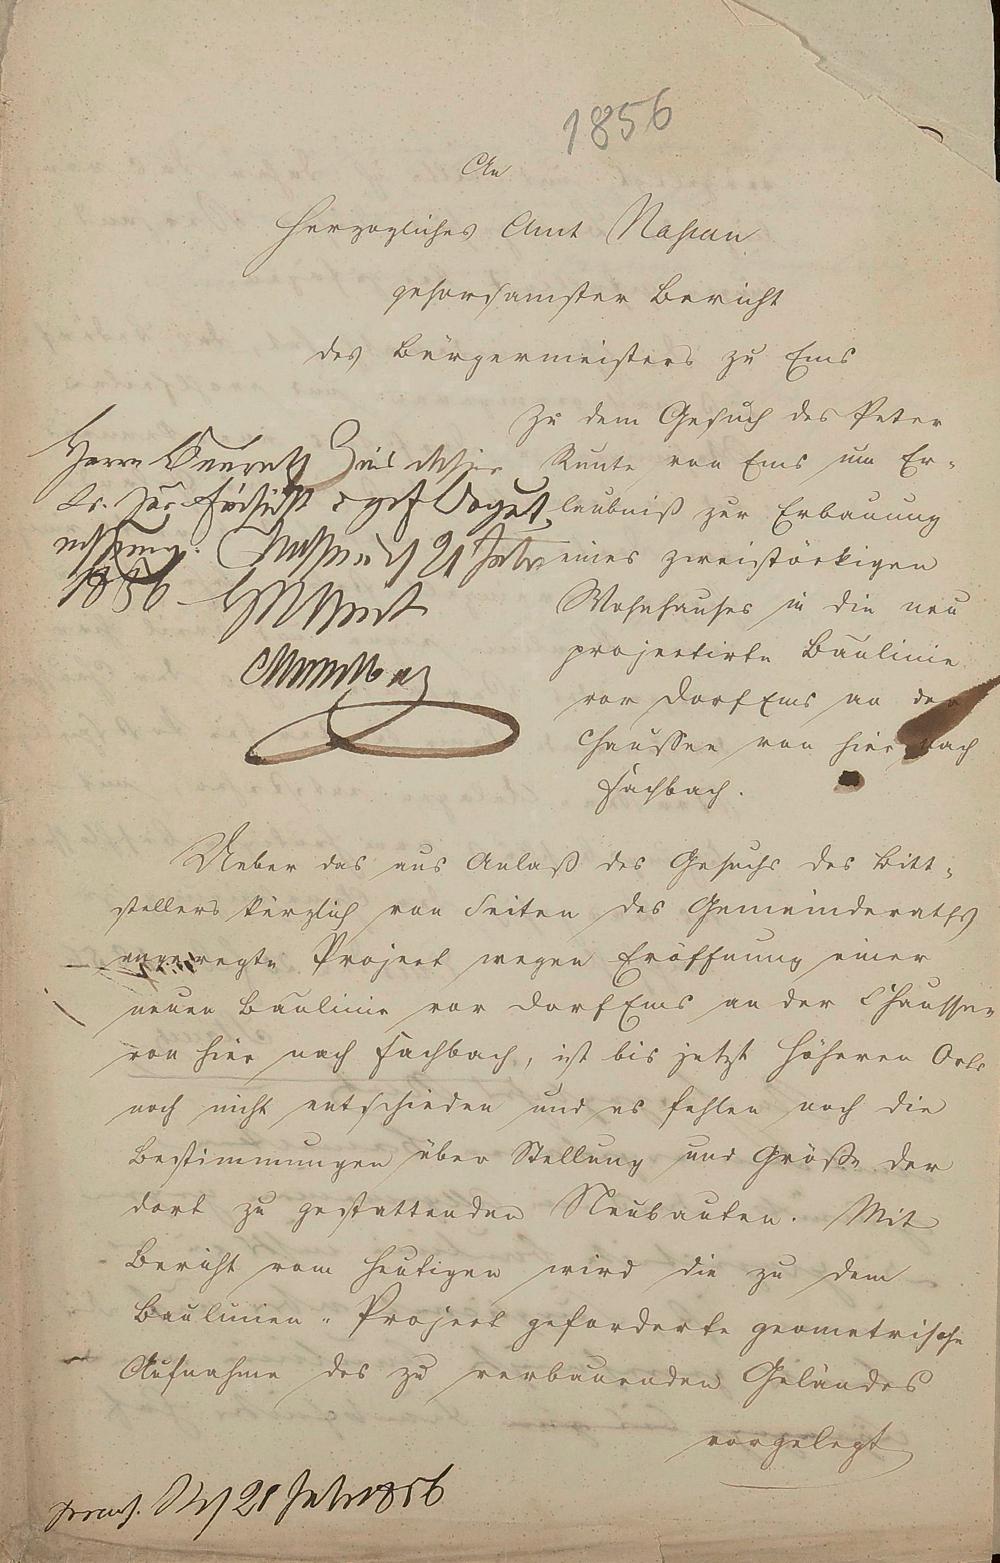 1856
An
Herzogliches Amt Nassau
gehorsamster Bericht
des Bürgermeisters zu Ems
Zu dem Gesuch des Peter
Kunte von Ems um Er-
laubniß zur Erbauung
eines zweistöckigen
Wohnhauses in die neu
projectirte Baulinie
vor Dorf Ems an der
Chaussee von hier nach
Fachbach.
Herrn
Nassau d 21 Febr
1856
Ueber das aus Anlaß des Gesuchs des Bitt-
stellers kürzlich von Seiten des Gemeinderaths
angeregte Project wegen Eröffnung einer
neuen Baulinie vor Dorf Ems an der Chaussee
von hier nach Fachbach, ist bis jetzt höheren Orts
noch nicht entschieden und es fehlen noch die
Bestimmungen über Stellung und Größe der
dort zu gestattenden Neubauten. Mit
Bericht vom Heutigen wird die zu dem
Baulinien-Project geforderte geometrische
Aufnahme des zu verbauenden Geländes
vorgelegt
praes. N d 21 Febr 1856